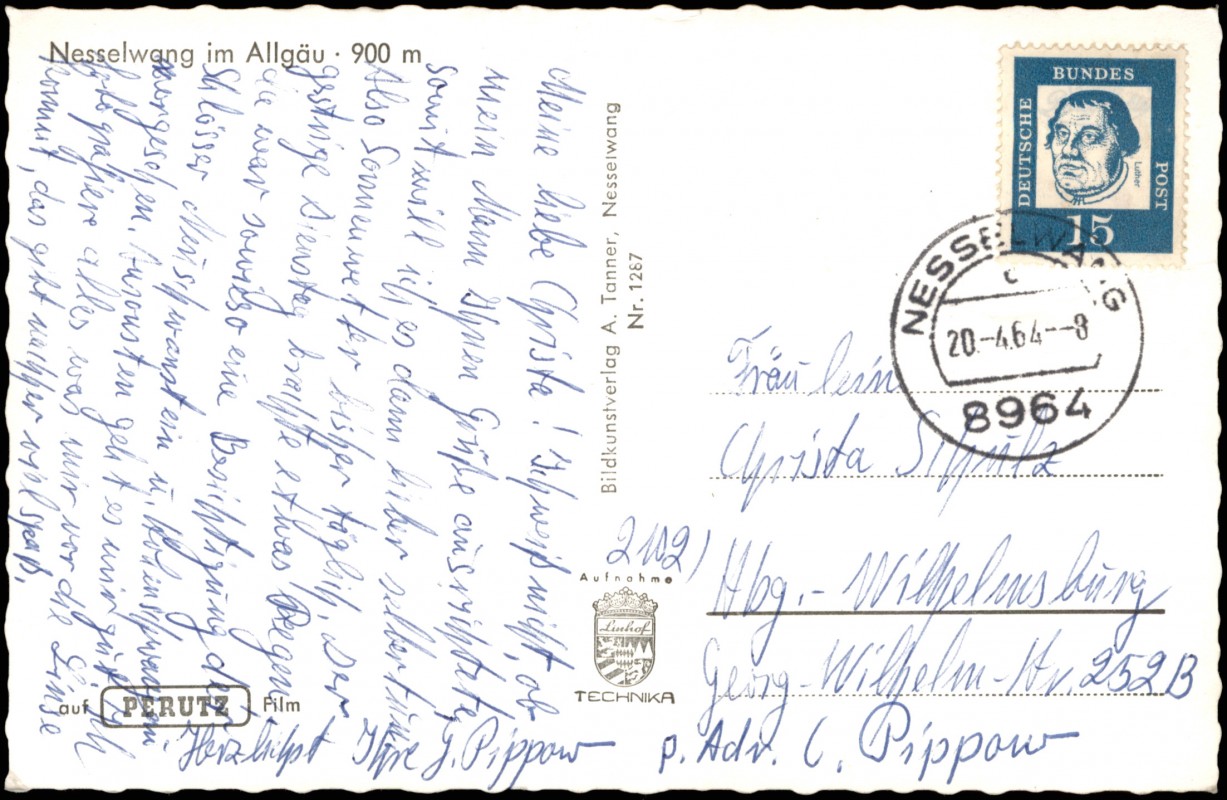 Nesselwang im Allgäu · 900 m
Meine liebe Christa! Ich weiß nicht, ob
mein Mann Ihnen Grüße ausrichtete,
somit will ich es dann lieber selber tun.
Also Sonnenwetter bisher täglich, der
gestrige Dienstag brachte etwas Regen
die war sowieso eine Besichtigung der
Schlösser Neuschwanstein u. Hohenschwangau
vorgesehen. Ansonsten geht es mir gut. Ich
fotografiere alles was mir vor die Linse
kommt, das gibt nachher viel Spaß.
Herzlichst Ihre J. Pippow
auf PERUTZ Film
Bildkunstverlag A. Tanner, Nesselwang
Nr. 1287
Aufnahme
Linhof
TECHNIKA
DEUTSCHE
BUNDES
POST
Luther
15
NESSELWANG
c
20.-4.64--8
8964
Fräulein
Christa Schulz
2102)
Hbg.-Wilhelmsburg
Georg-Wilhelm-Str. 252B
p. Adr. C. Pippow